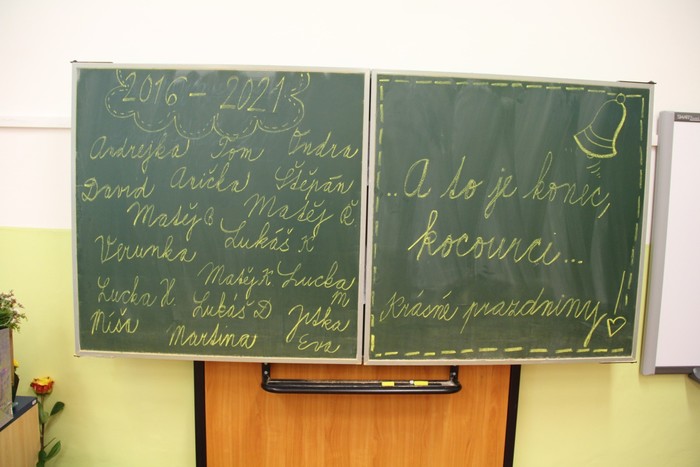 2016 - 2021
Andrejka Tom Ondra
David Anička Štěpán
Matěj B Matěj Č
Verunka Lukáš K
Matěj K Lucka M
Lucka H Lukáš D Jitka
Míša Martina Eva
..A to je konec,
kocourci...
Krásné prazdniny